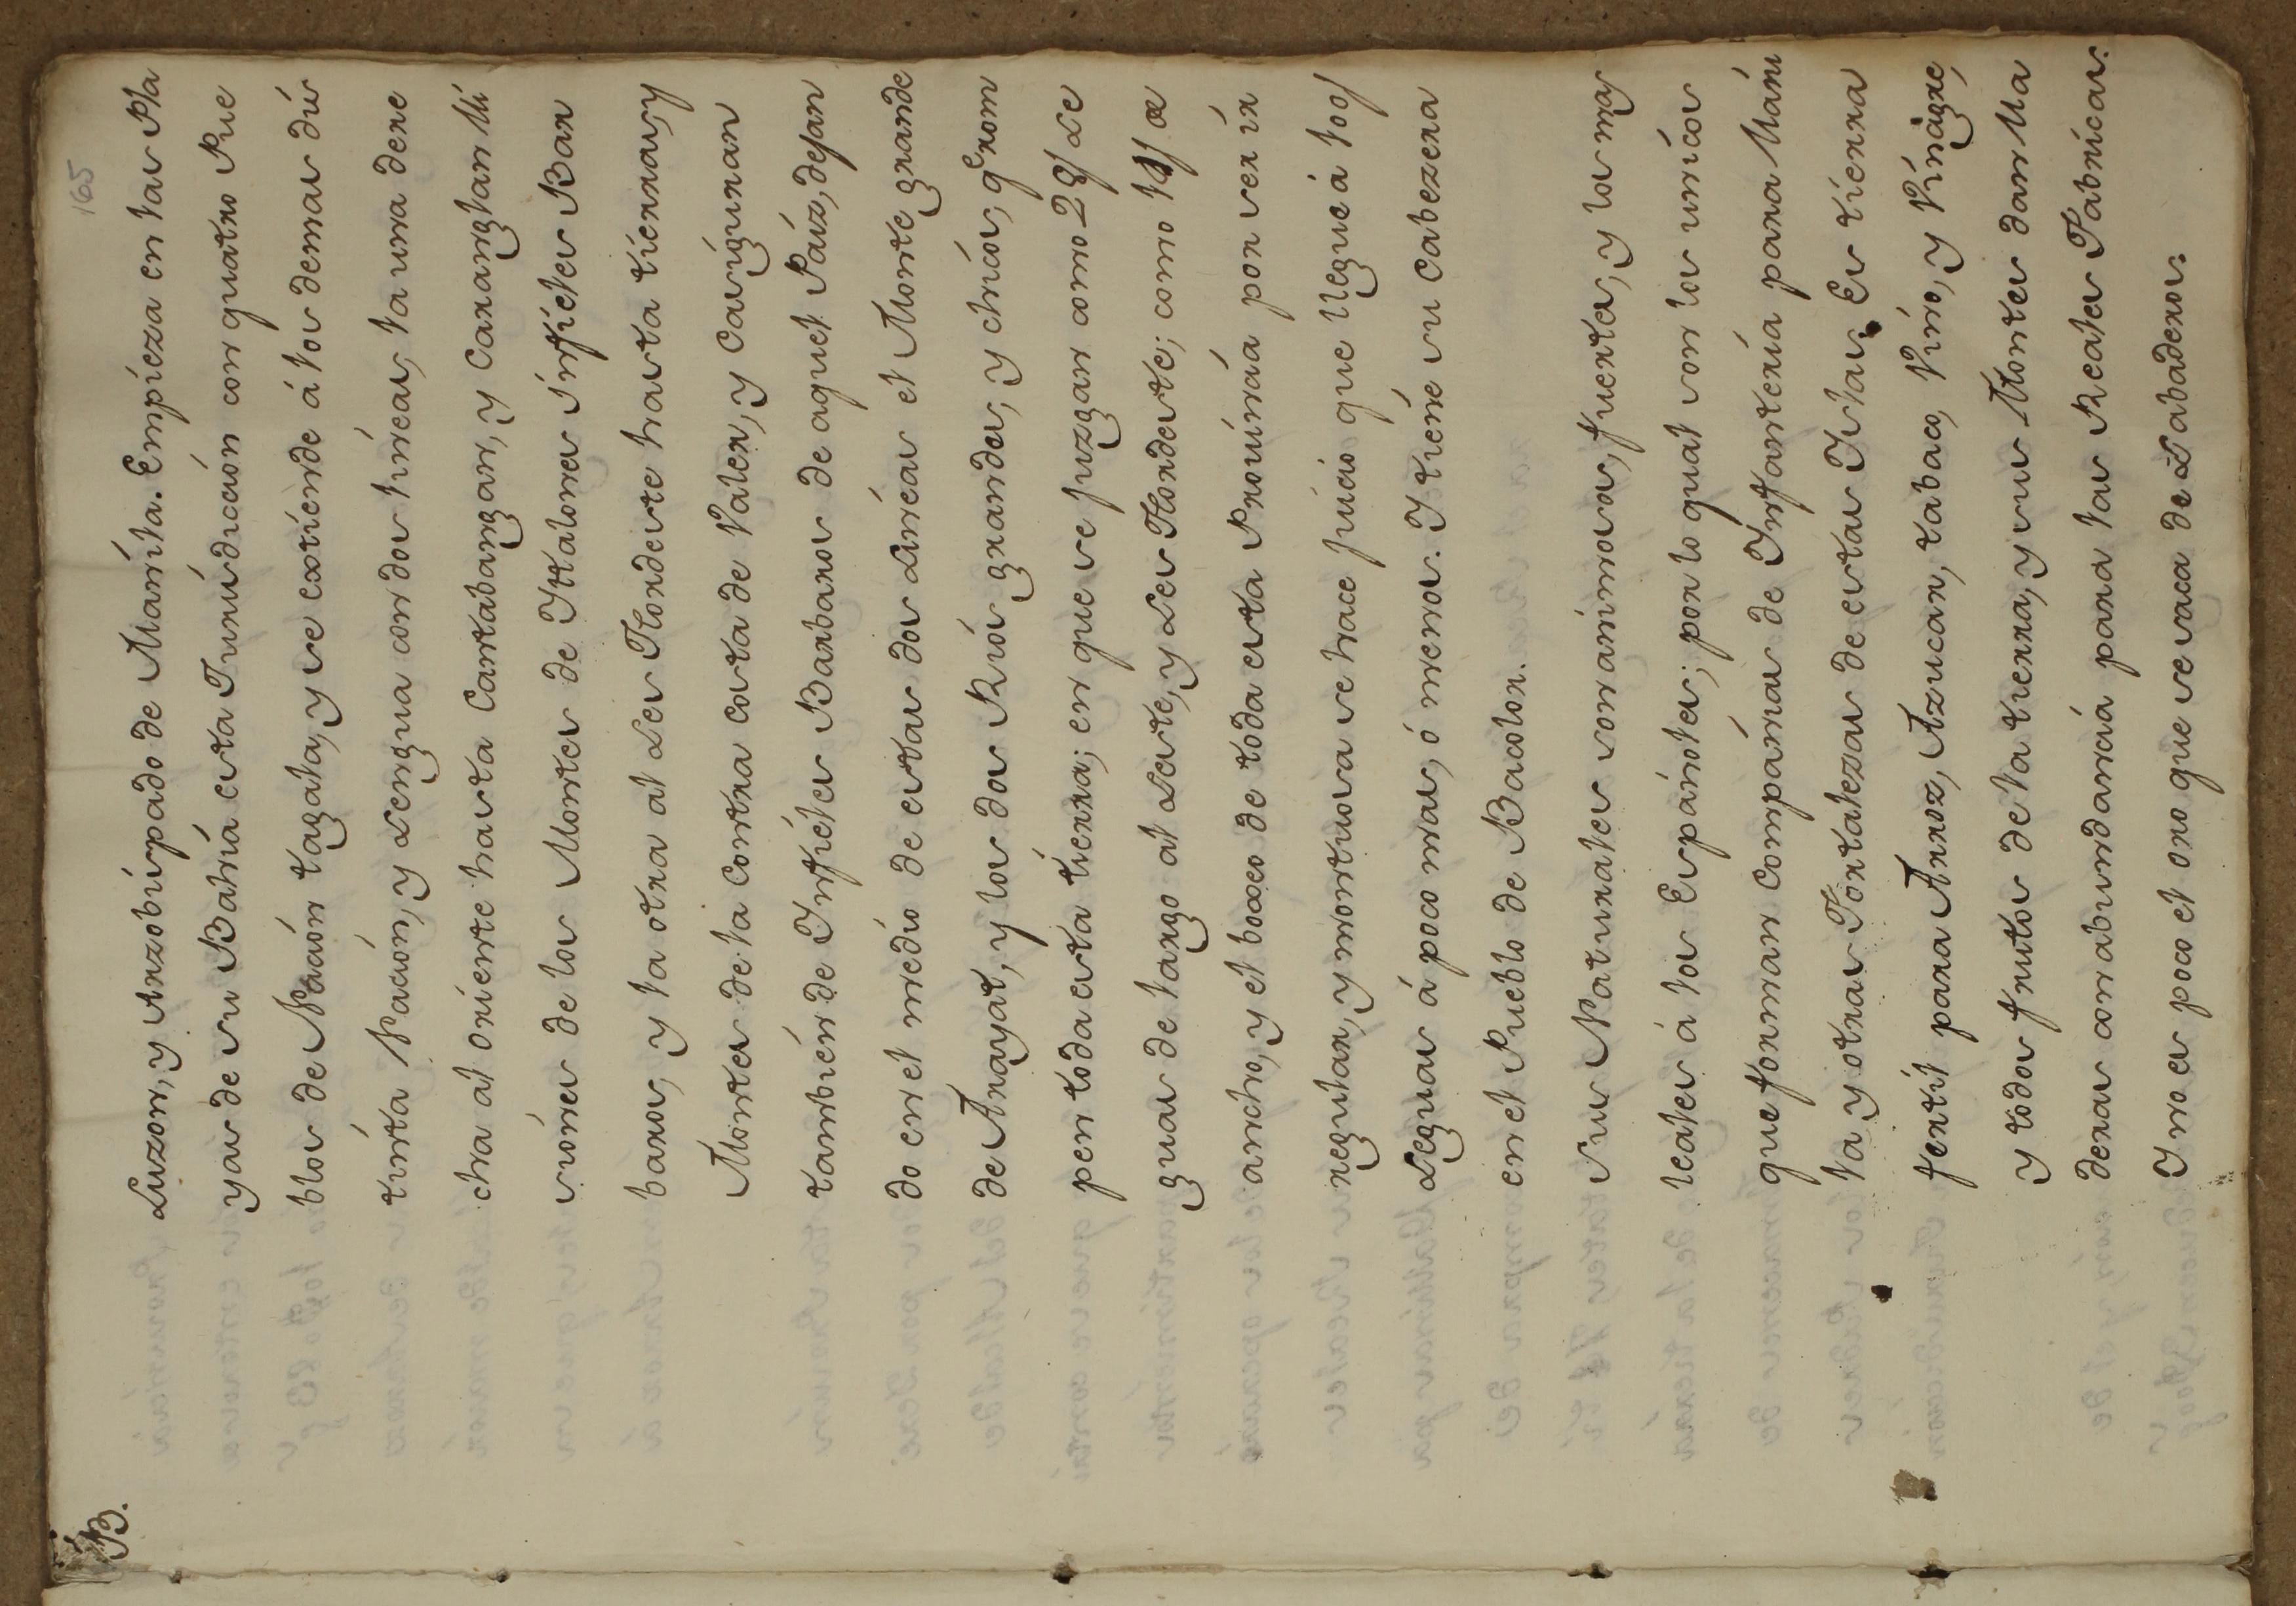 165
B.
Luzon, y Arzobispado de Manila. Empieza en las Pla
yas de su Bahia esta Jurisdicion con quatro Pue
blos de Nacion tagala, y se extiende á los demas dis
tinta Nacion, y Lengua con dos lineas, la una dere
cha al oriente hasta Cantabangan, y Caranglan Mi
siones de los Montes de Yttalones infieles Bar
baros, y la otra al Les Nordeste hasta tierras, y
Montes de la Contra costa de Valer, y Casiguran
tambien de Infieles Barbaros de aquel Paiz, dejan
do en el medio de estas dos Lineas el Monte grande
de Arayat, y los dos Rios grandes, y chicos, q.e rom
pen toda esta tierra; en que se juzgan como 28/ Le
guas de largo al Leste, y Les Nordeste; como
ancho, y el boxeo de toda esta Provincia por ser ir
regular, y montuosa se hace juicio que llegue á 100/
Leguas á poco mas, ó menos. Y tiene su Cabezera
en el Pueblo de Bacolor.
Sus Naturales son animosos, fuertes, y los mas
leales á los Españoles; por lo qual son los unicos
que forman Compañias de Infanteria para Mani
la y otras Fortalezas de estas Yslas. Es tierra
fertil para Arroz, Azucar, tabaco, Vino, y Vinagre,
y todos frutos de la tierra, y sus Montes dan Ma
deras con abundancia para las Reales Fabricas.
Y no es poco el oro que se saca de Labaderos.